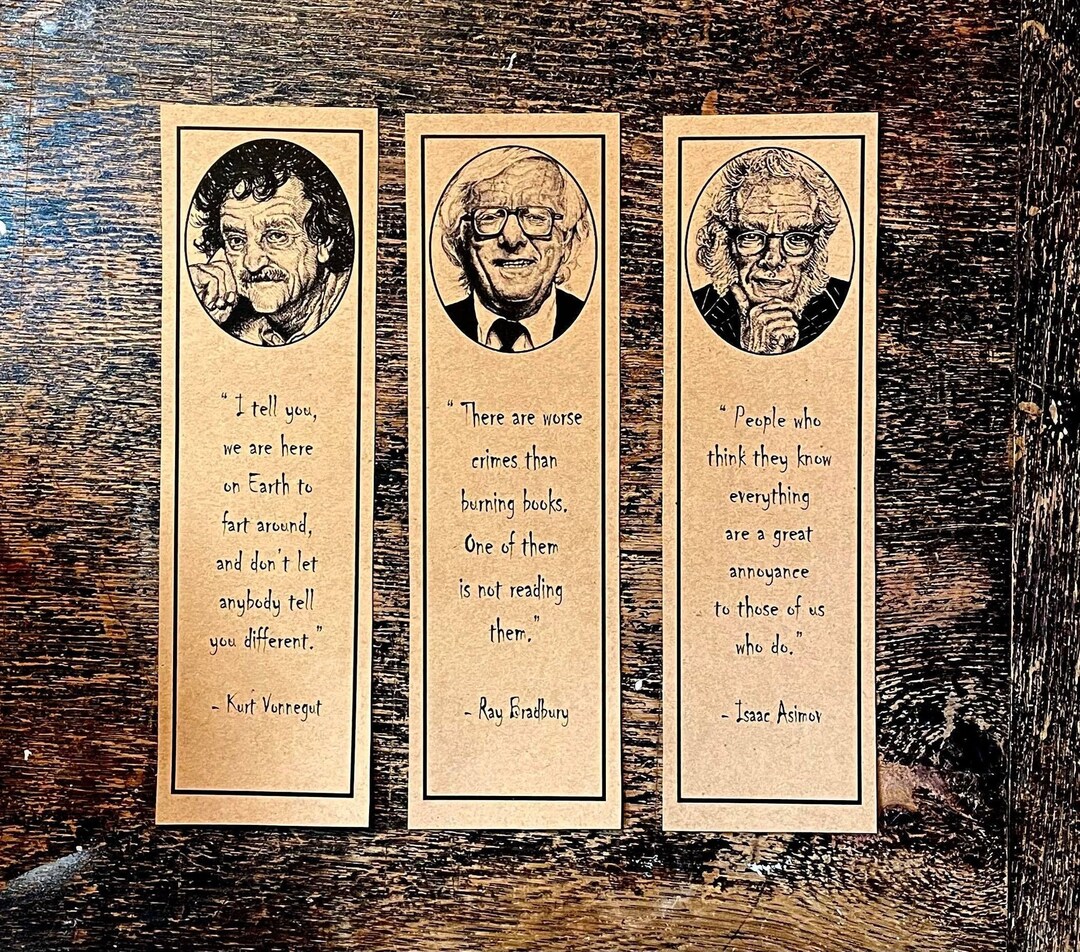 “ I tell you,
we are here
on Earth to
fart around,
and don't let
anybody tell
you different.”
- Kurt Vonnegut
“ There are worse
crimes than
burning books.
One of them
is not reading
them.”
- Ray Bradbury
“ People who
think they know
everything
are a great
annoyance
to those of us
who do.”
- Isaac Asimov